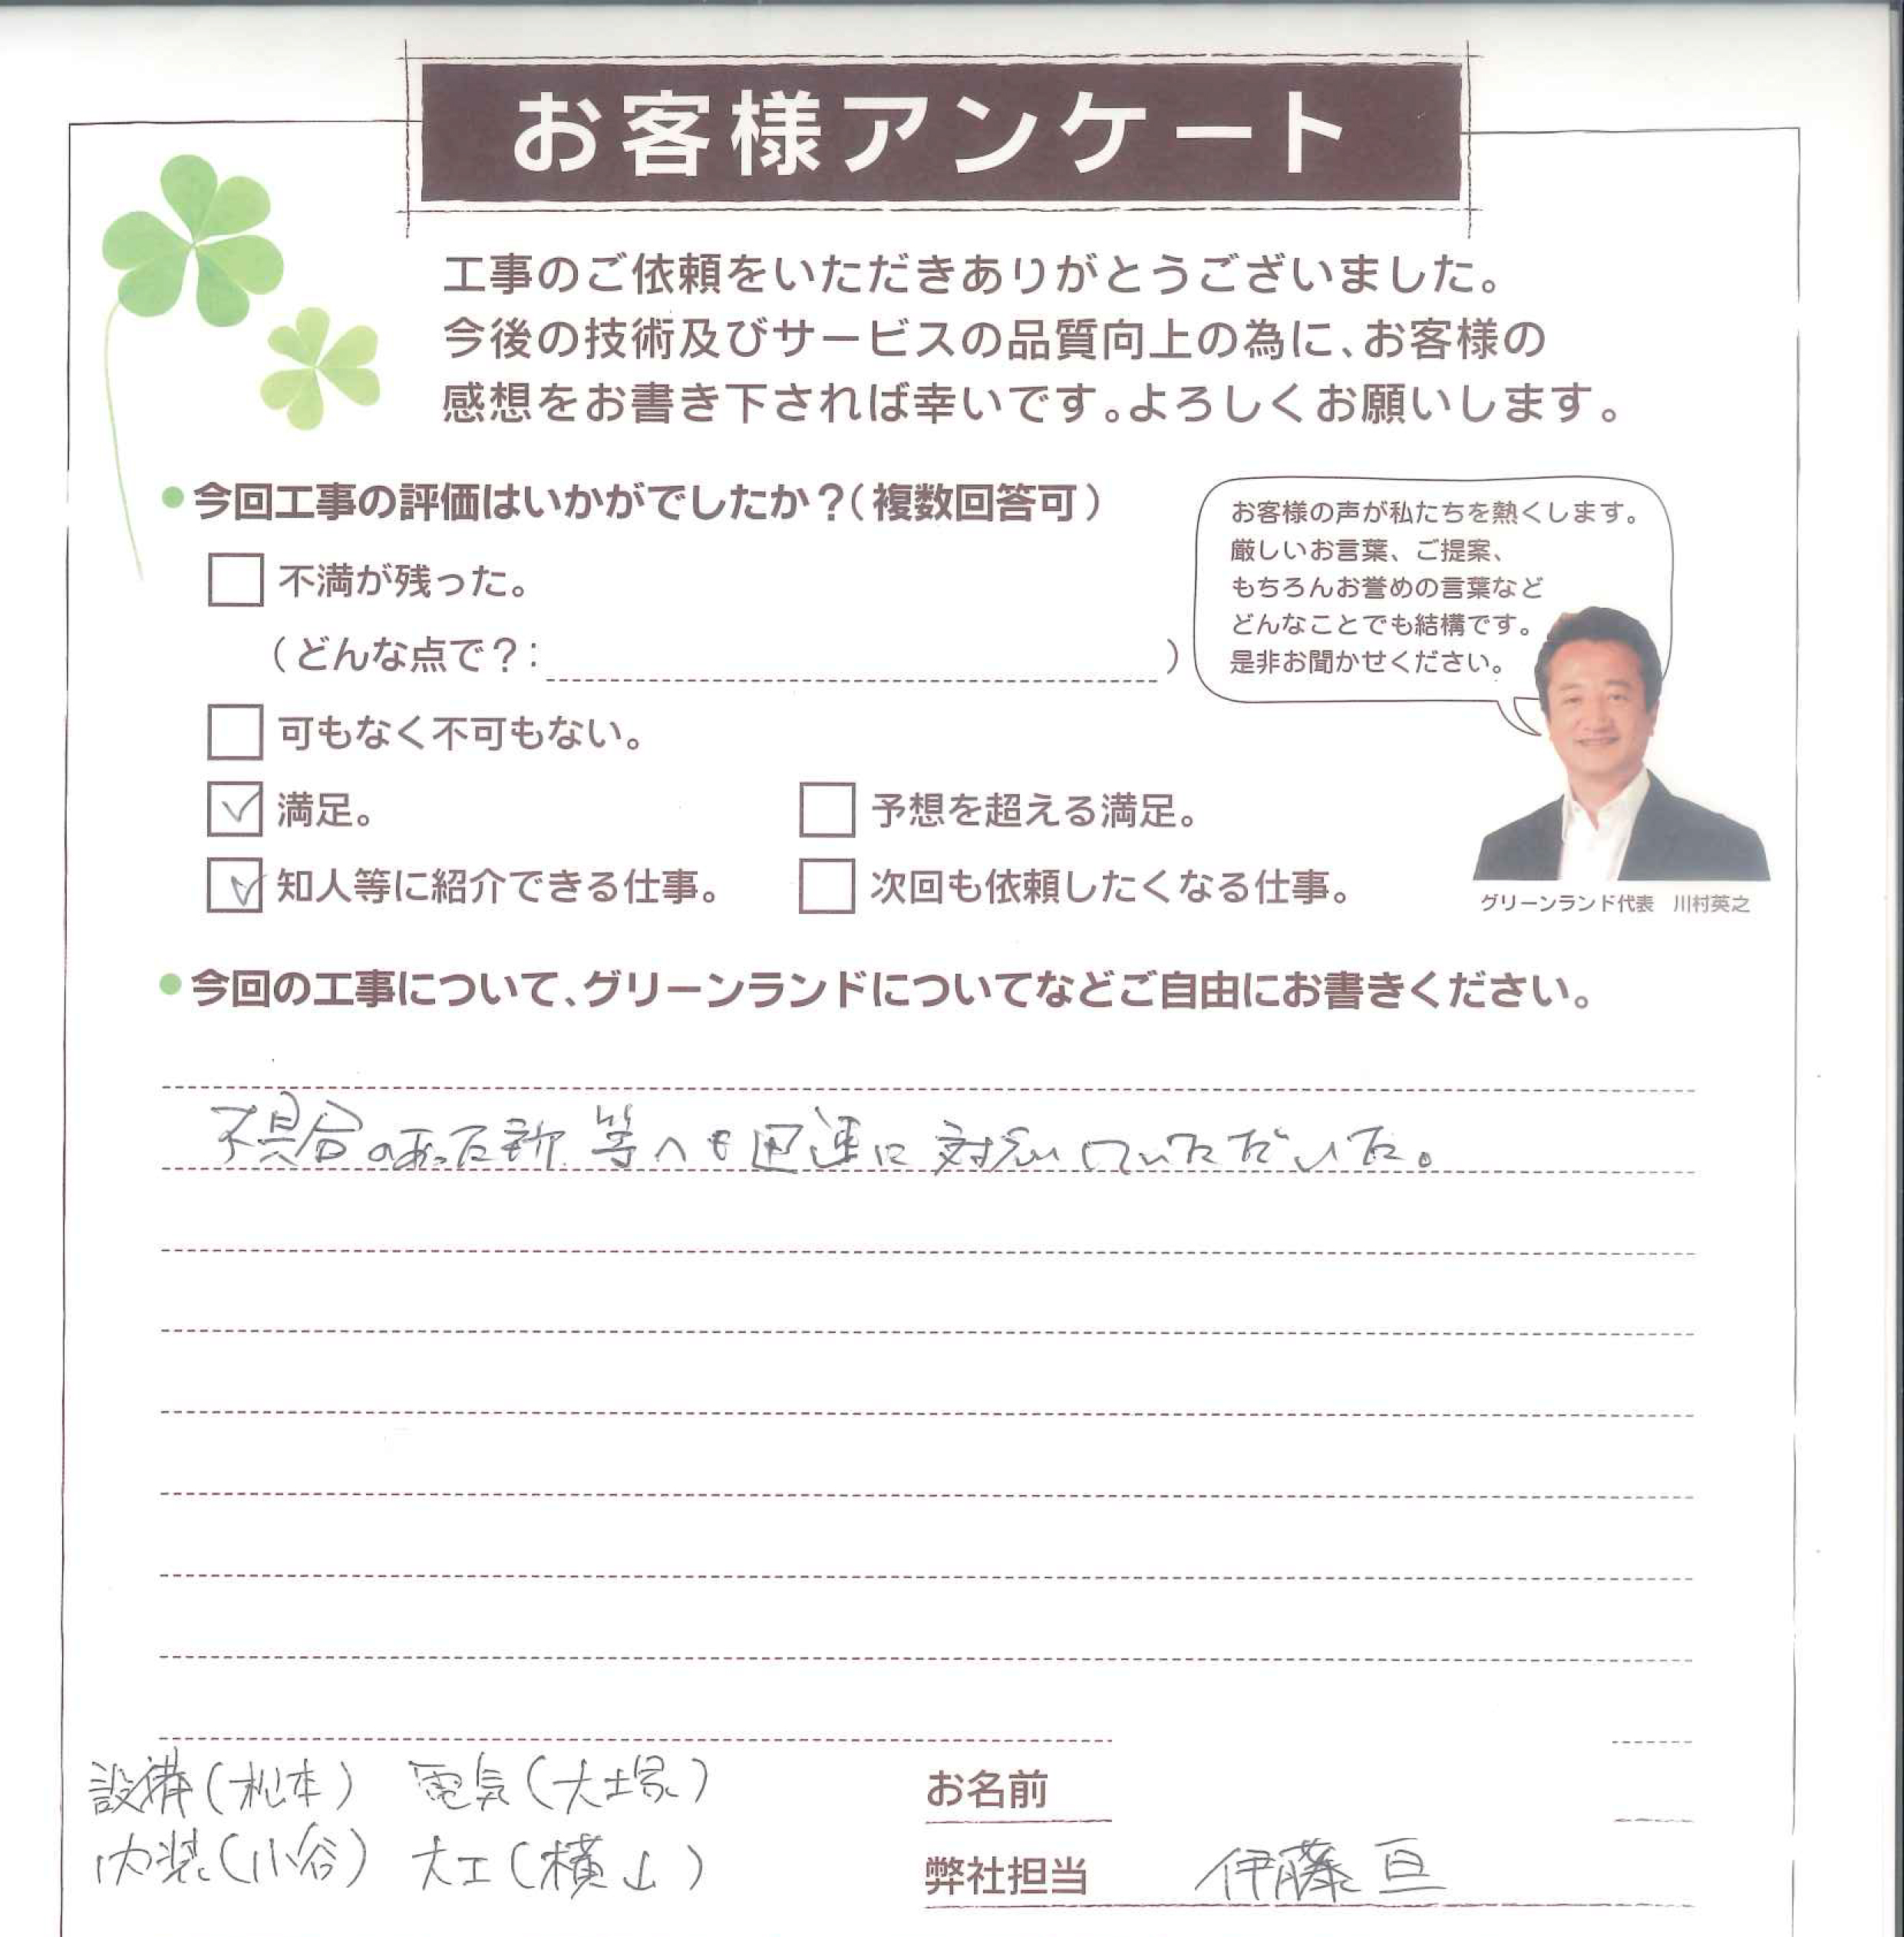 お客様アンケート
工事のご依頼をいただきありがとうございました。
今後の技術及びサービスの品質向上の為に、お客様の
感想をお書き下されば幸いです。よろしくお願いします。
●今回工事の評価はいかがでしたか？（複数回答可）
不満が残った。
（どんな点で？：　）
可もなく不可もない。
満足。
予想を超える満足。
知人等に紹介できる仕事。
次回も依頼したくなる仕事。
お客様の声が私たちを熱くします。
厳しいお言葉、ご提案、
もちろんお誉めの言葉など
どんなことでも結構です。
是非お聞かせください。
グリーンランド代表　川村英之
●今回の工事について、グリーンランドについてなどご自由にお書きください。
不具合のあった 等へも迅速に対応していただいた。
設備（松本）　電気（大塚）
内装（小谷）　大工（横山）
お名前
弊社担当　伊藤 亘